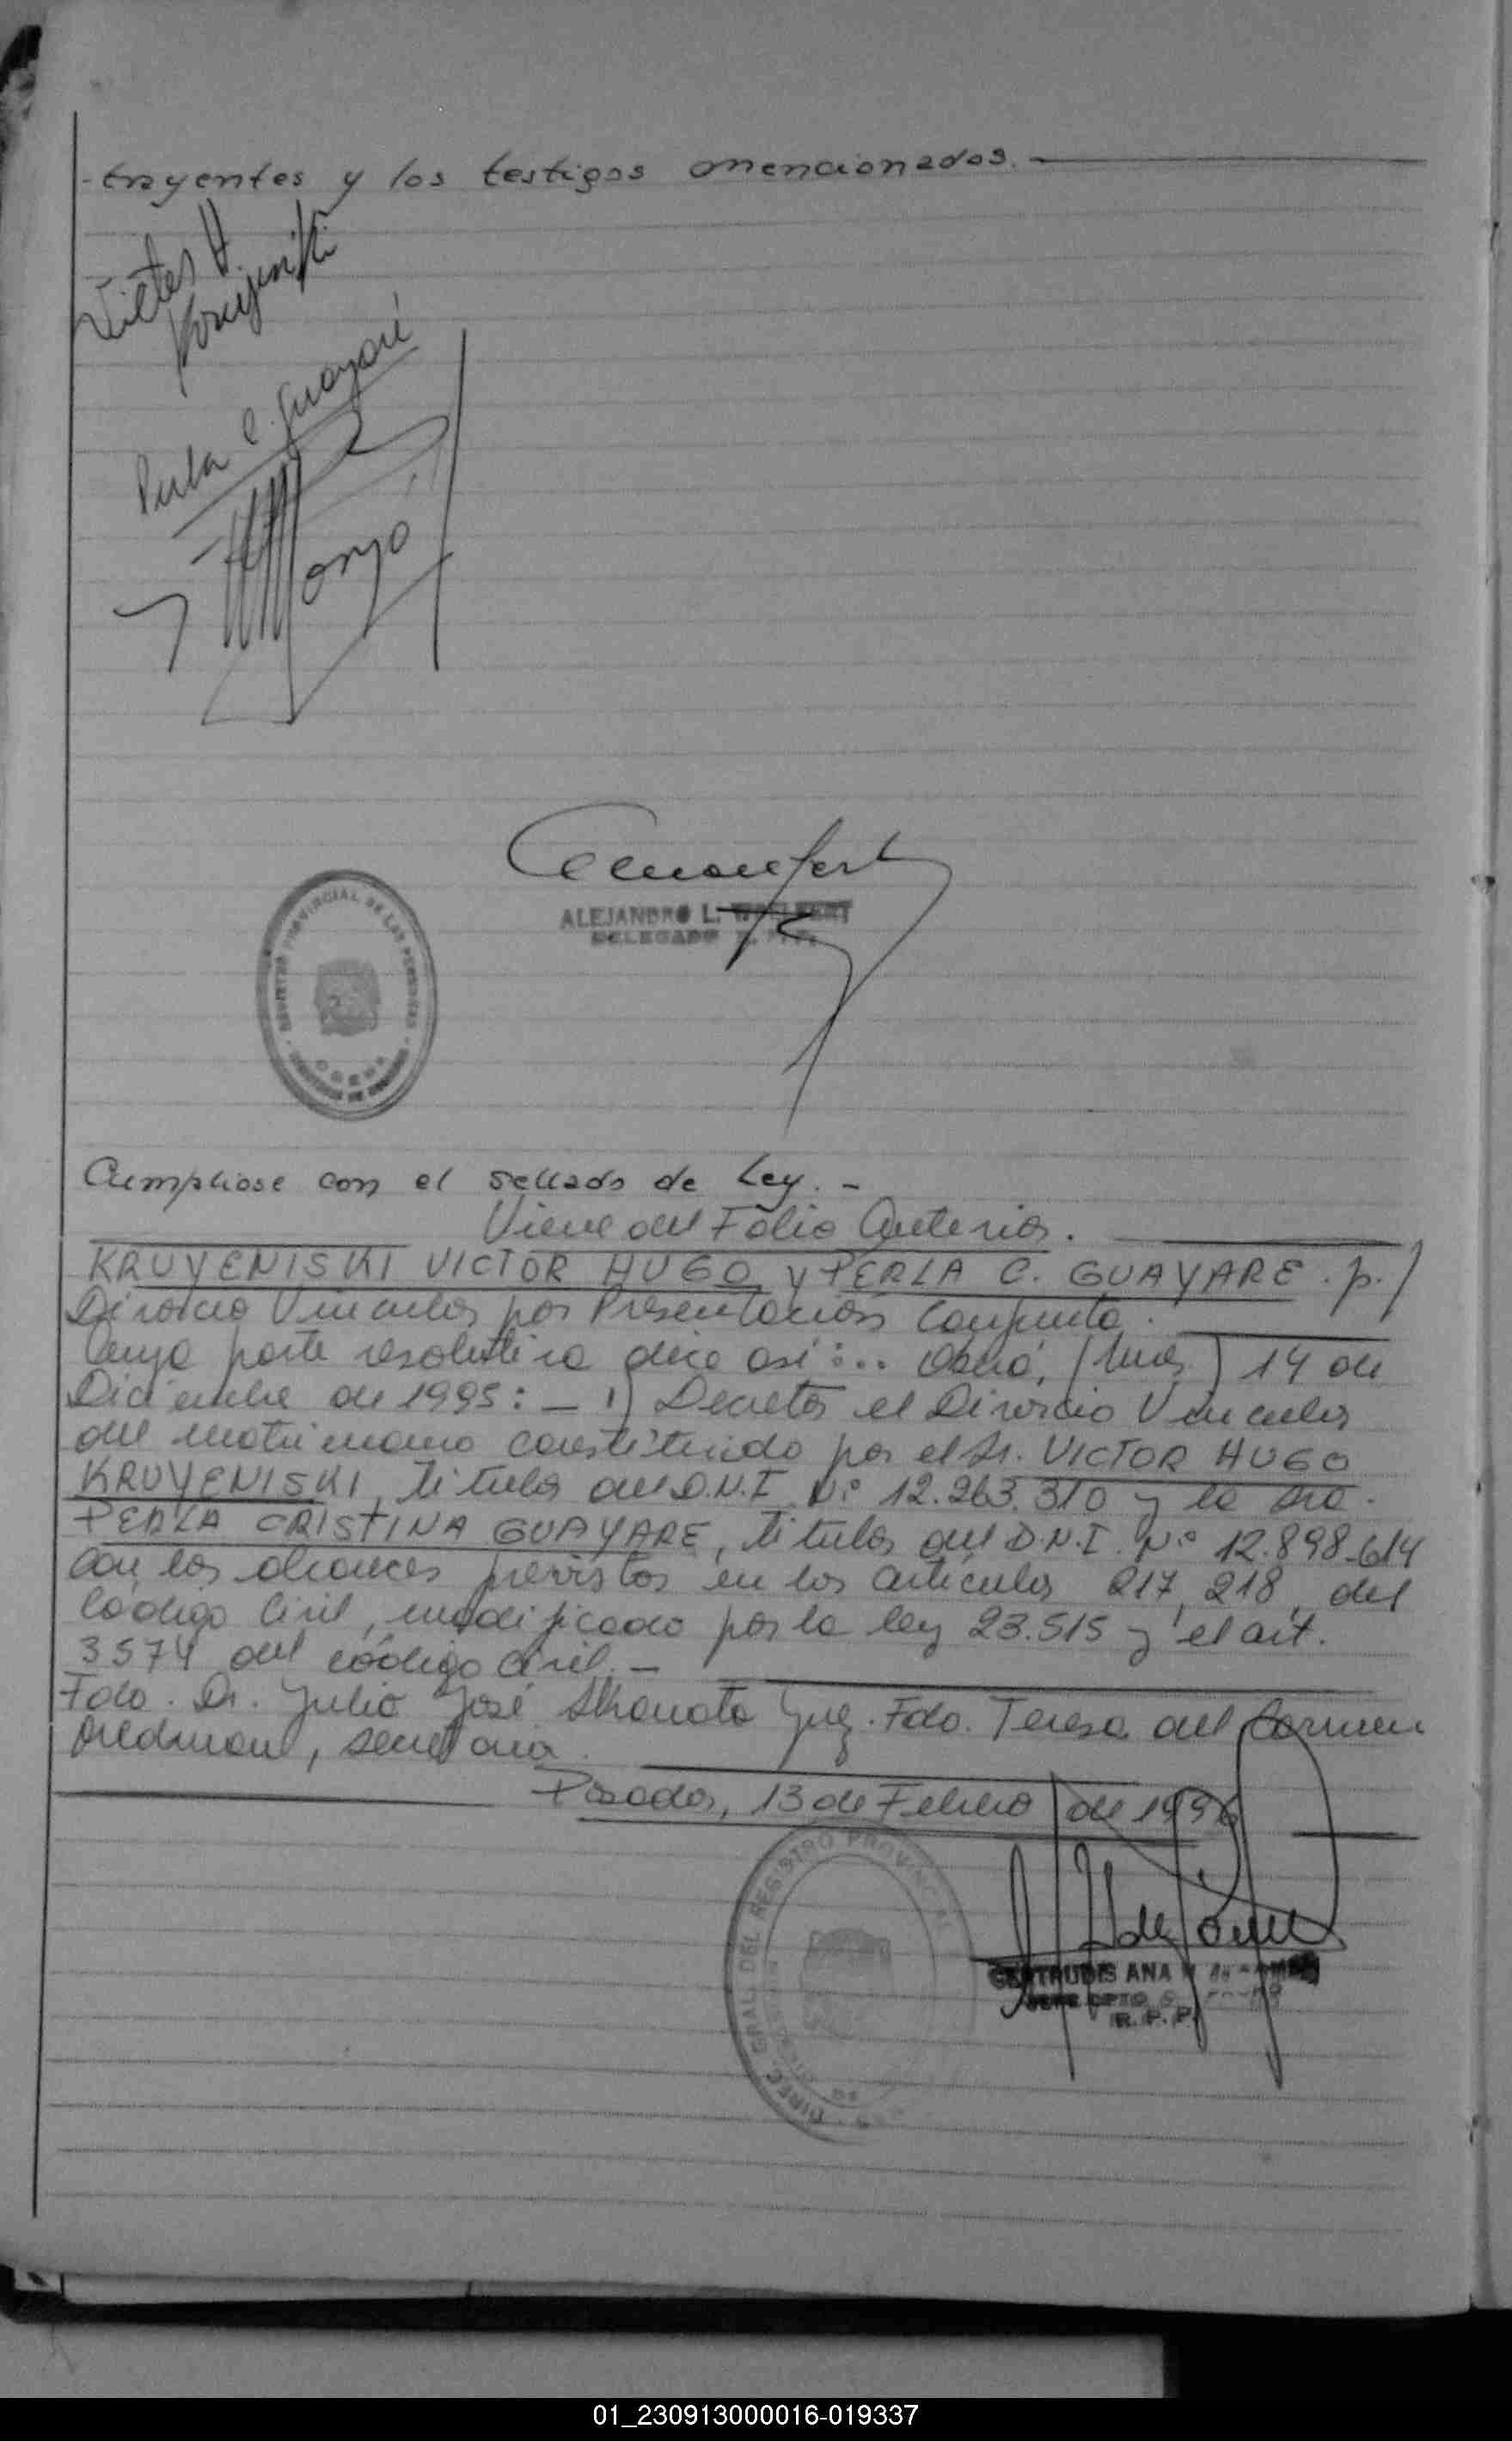 -trayentes y los testigos mencionados.-
Victor H.
Kruyeniski
Perla C. Guayaré
Monzó
ALEJANDRO L.
DELEGADO
REGISTRO PROVINCIAL DE LAS PERSONAS
OBERA
Cumpliose con el sellado de Ley. -
Viene del Folio Anterior.
KRUYENISKI VICTOR HUGO y PERLA C. GUAYARE. p./
Divorcio Vincular por Presentación Conjunta.
Cuya parte resolutiva dice así:.. Oberá, (Mnes.) 14 de
Diciembre de 1995: _ 1) Decretar el Divorcio Vincular
del matrimonio constituido por el Sr. VICTOR HUGO
KRUYENISKI, titular del D.N.I. N:º 12.263.310 y la Sra.
PERLA CRISTINA GUAYARE, titular del D.N.I. N:º 12.898.614
con los alcances previstos en los artículos 217, 218, del
Código Civil, modificado por la ley 23.515 y el art.
3574 del código Civil. -
Fdo. Dr. Julio José Juez. Fdo. Teresa del Carmen
, secretaria.
Posadas, 13 de Febrero de 1996
DIREC. GRAL. DEL REGISTRO PROVINCIAL
GERTRUDIS ANA
JEFE DPTO
R. P. P.
01_230913000016-019337